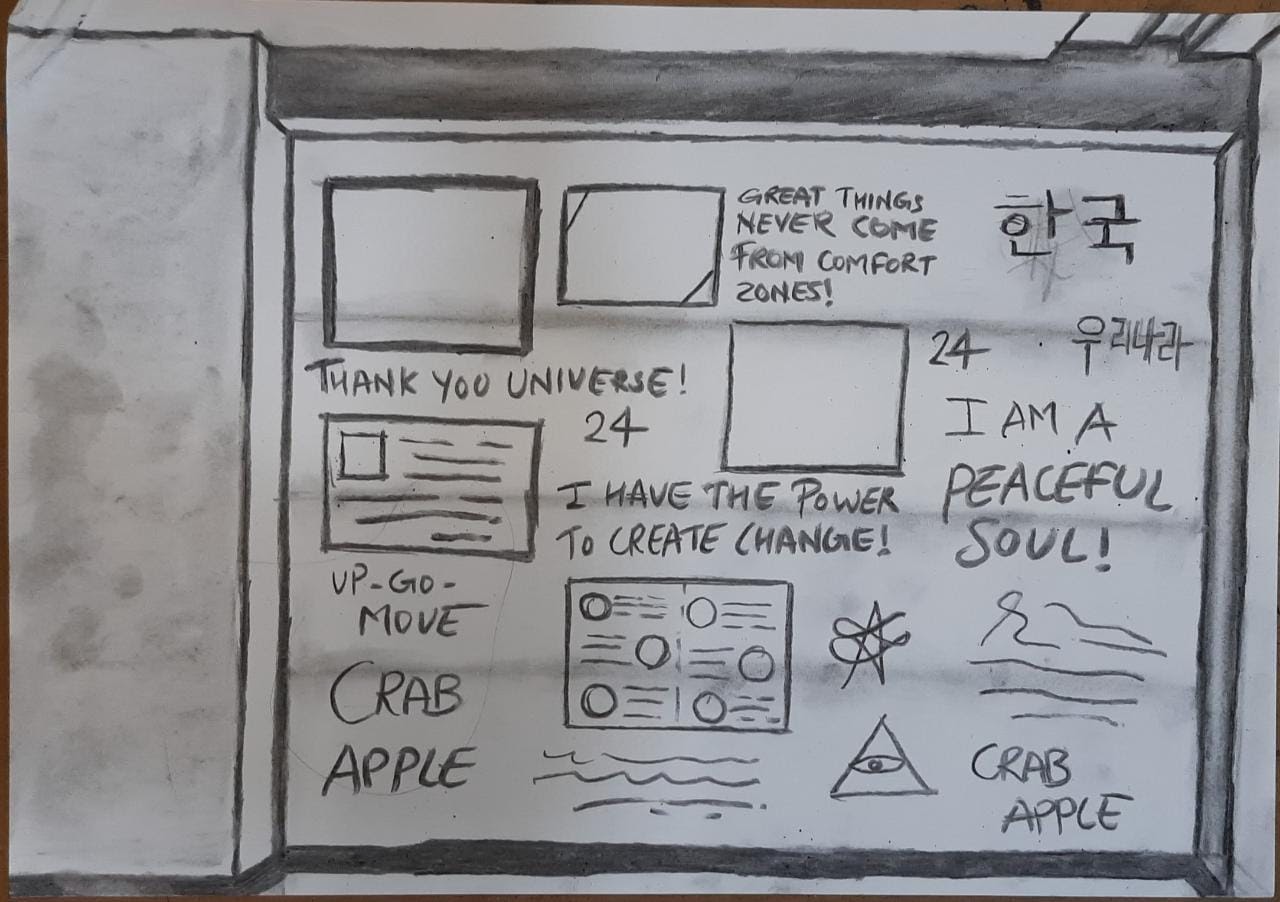 GREAT THINGS
NEVER COME
FROM COMFORT
ZONES!
한국
24
우리나라
THANK YOU UNIVERSE!
24
I AM A
PEACEFUL
SOUL!
I HAVE THE POWER
TO CREATE CHANGE!
UP-GO-
MOVE
CRAB
APPLE
CRAB
APPLE